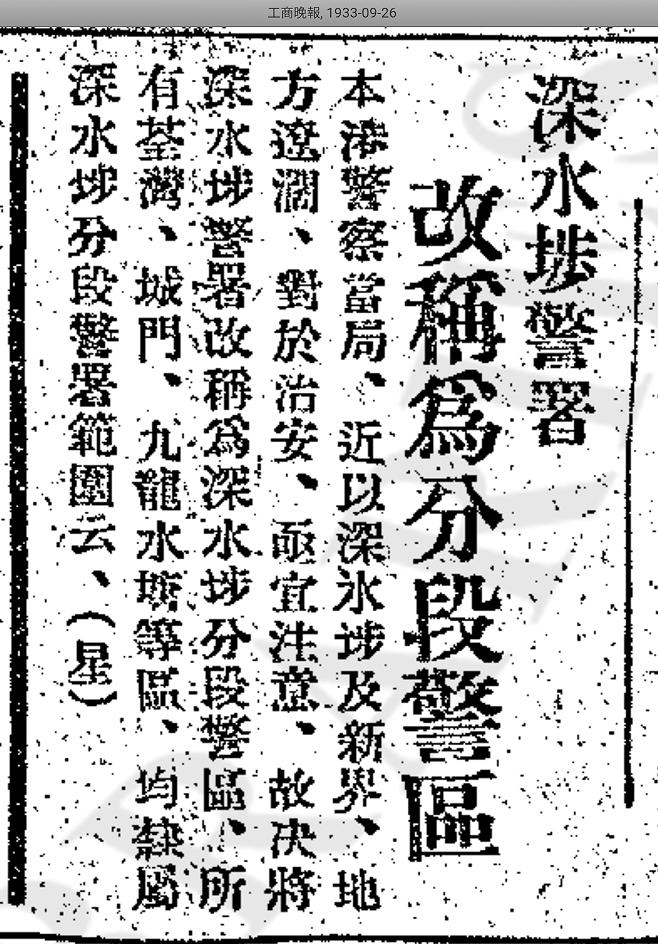 工商晚報, 1933-09-26
深水埗警署
改稱為分段警區
本港警察當局、近以深水埗及新界、地
方遼濶、對於治安、亟宜注意、故决將
深水埗警署改稱為深水埗分段警區、所
有荃灣、城門、九龍水塘等區、均隸屬
深水埗分段警署範圍云、（星）